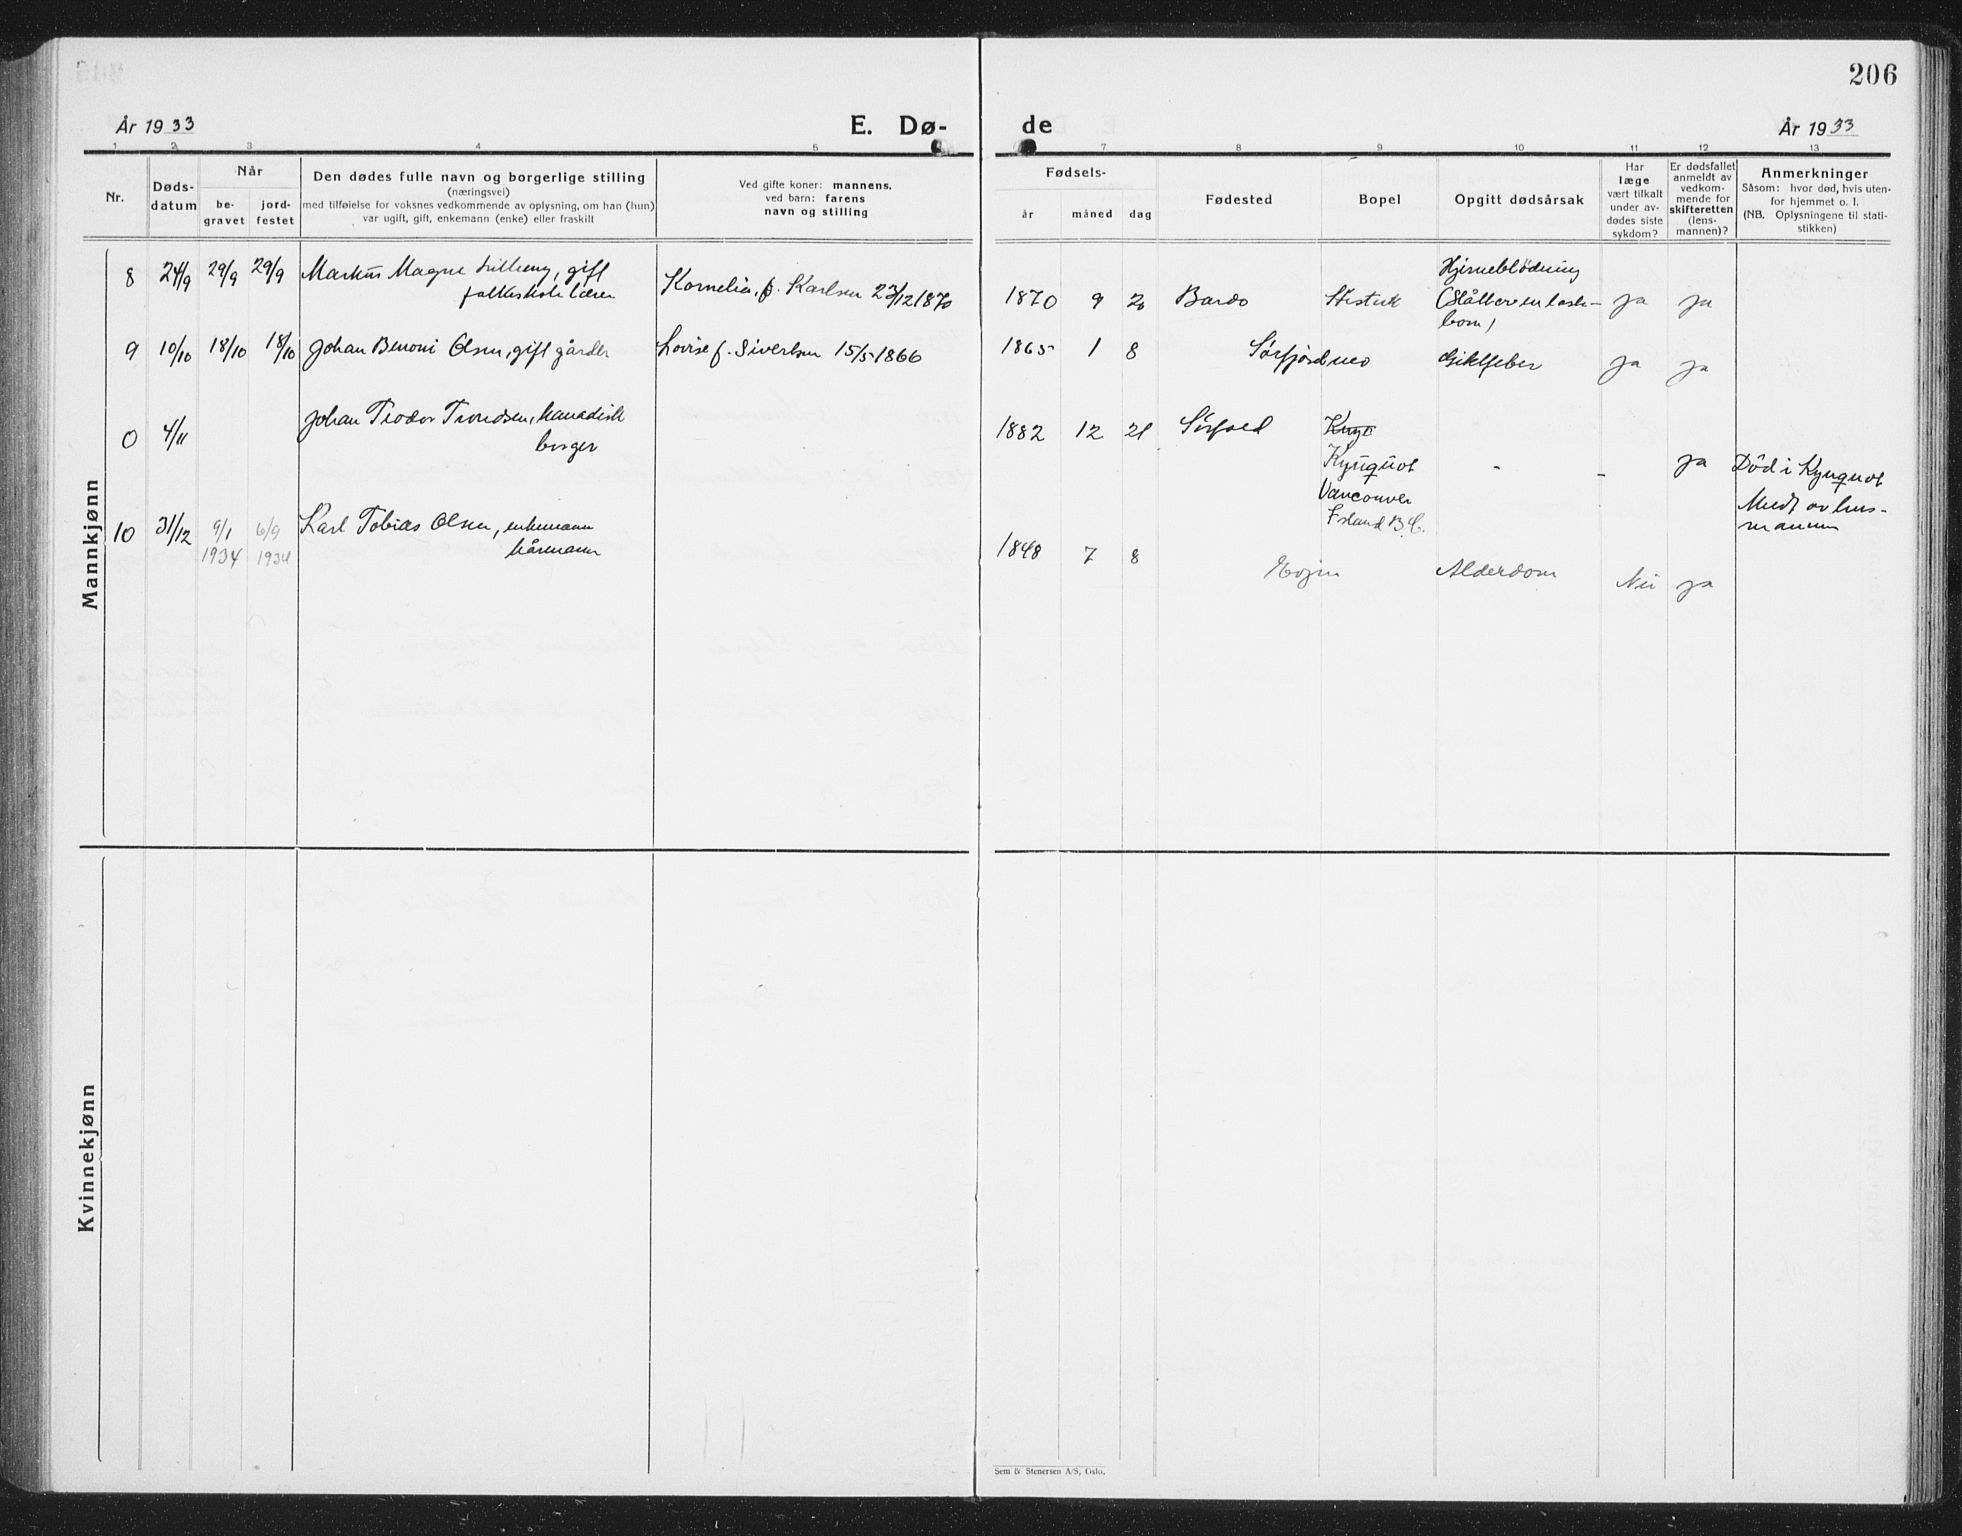 206
År 1933
E. Dø-
de
År 1933
1 2 3 4 5 7 8 9 10 11 12 13
Nr.
Døds-
datum
Når
be-
gravet
jord-
festet
Den dødes fulle navn og borgerlige stilling
(næringsvei)
med tilføielse for voksnes vedkommende av oplysning, om han (hun)
var ugift, gift, enkemann (enke) eller fraskilt
Ved gifte koner: mannens,
ved barn: farens
navn og stilling
Fødsels-
år måned dag
Fødested
Bopel
Opgitt dødsårsak
Har
læge
vært tilkalt
under av-
dødes siste
sykdom?
Er dødsfallet
anmeldt av
vedkom-
mende for
skifteretten
(lens-
mannen)?
Anmerkninger
Såsom: hvor død, hvis uten-
for hjemmet o. l.
(NB. Oplysningene til stati-
stikken)
Mannkjønn
8 24/9 29/9 29/9 Markus Magne, gift
folkeskolelærer
Kornelia, f. Karlsen 23/12 1870
1870 9 Bardo
Hjerneblödning
ja ja
9 10/10 18/10 18/10 Johan Benoni Olsen, gift gårdbr
Lovise f. Sivertsen 15/5 1866
1865 1 8 Sörfjordmo Giktfeber ja ja
0 4/11 Johan Teodor Trondsen, kanadisk
borger
1882 12 21 Sörfold
Kyuquot
Vancouver
Island B.C.
- - ja
Död i Kyuquot
10 31/12 9/1 6/9 Karl Tobias Olsen, enkemann
1934 1934 kårmann
1848 7 8 Evjen Alderdom Nei ja
Kvinnekjønn
Sem & Stenersen A/S, Oslo.